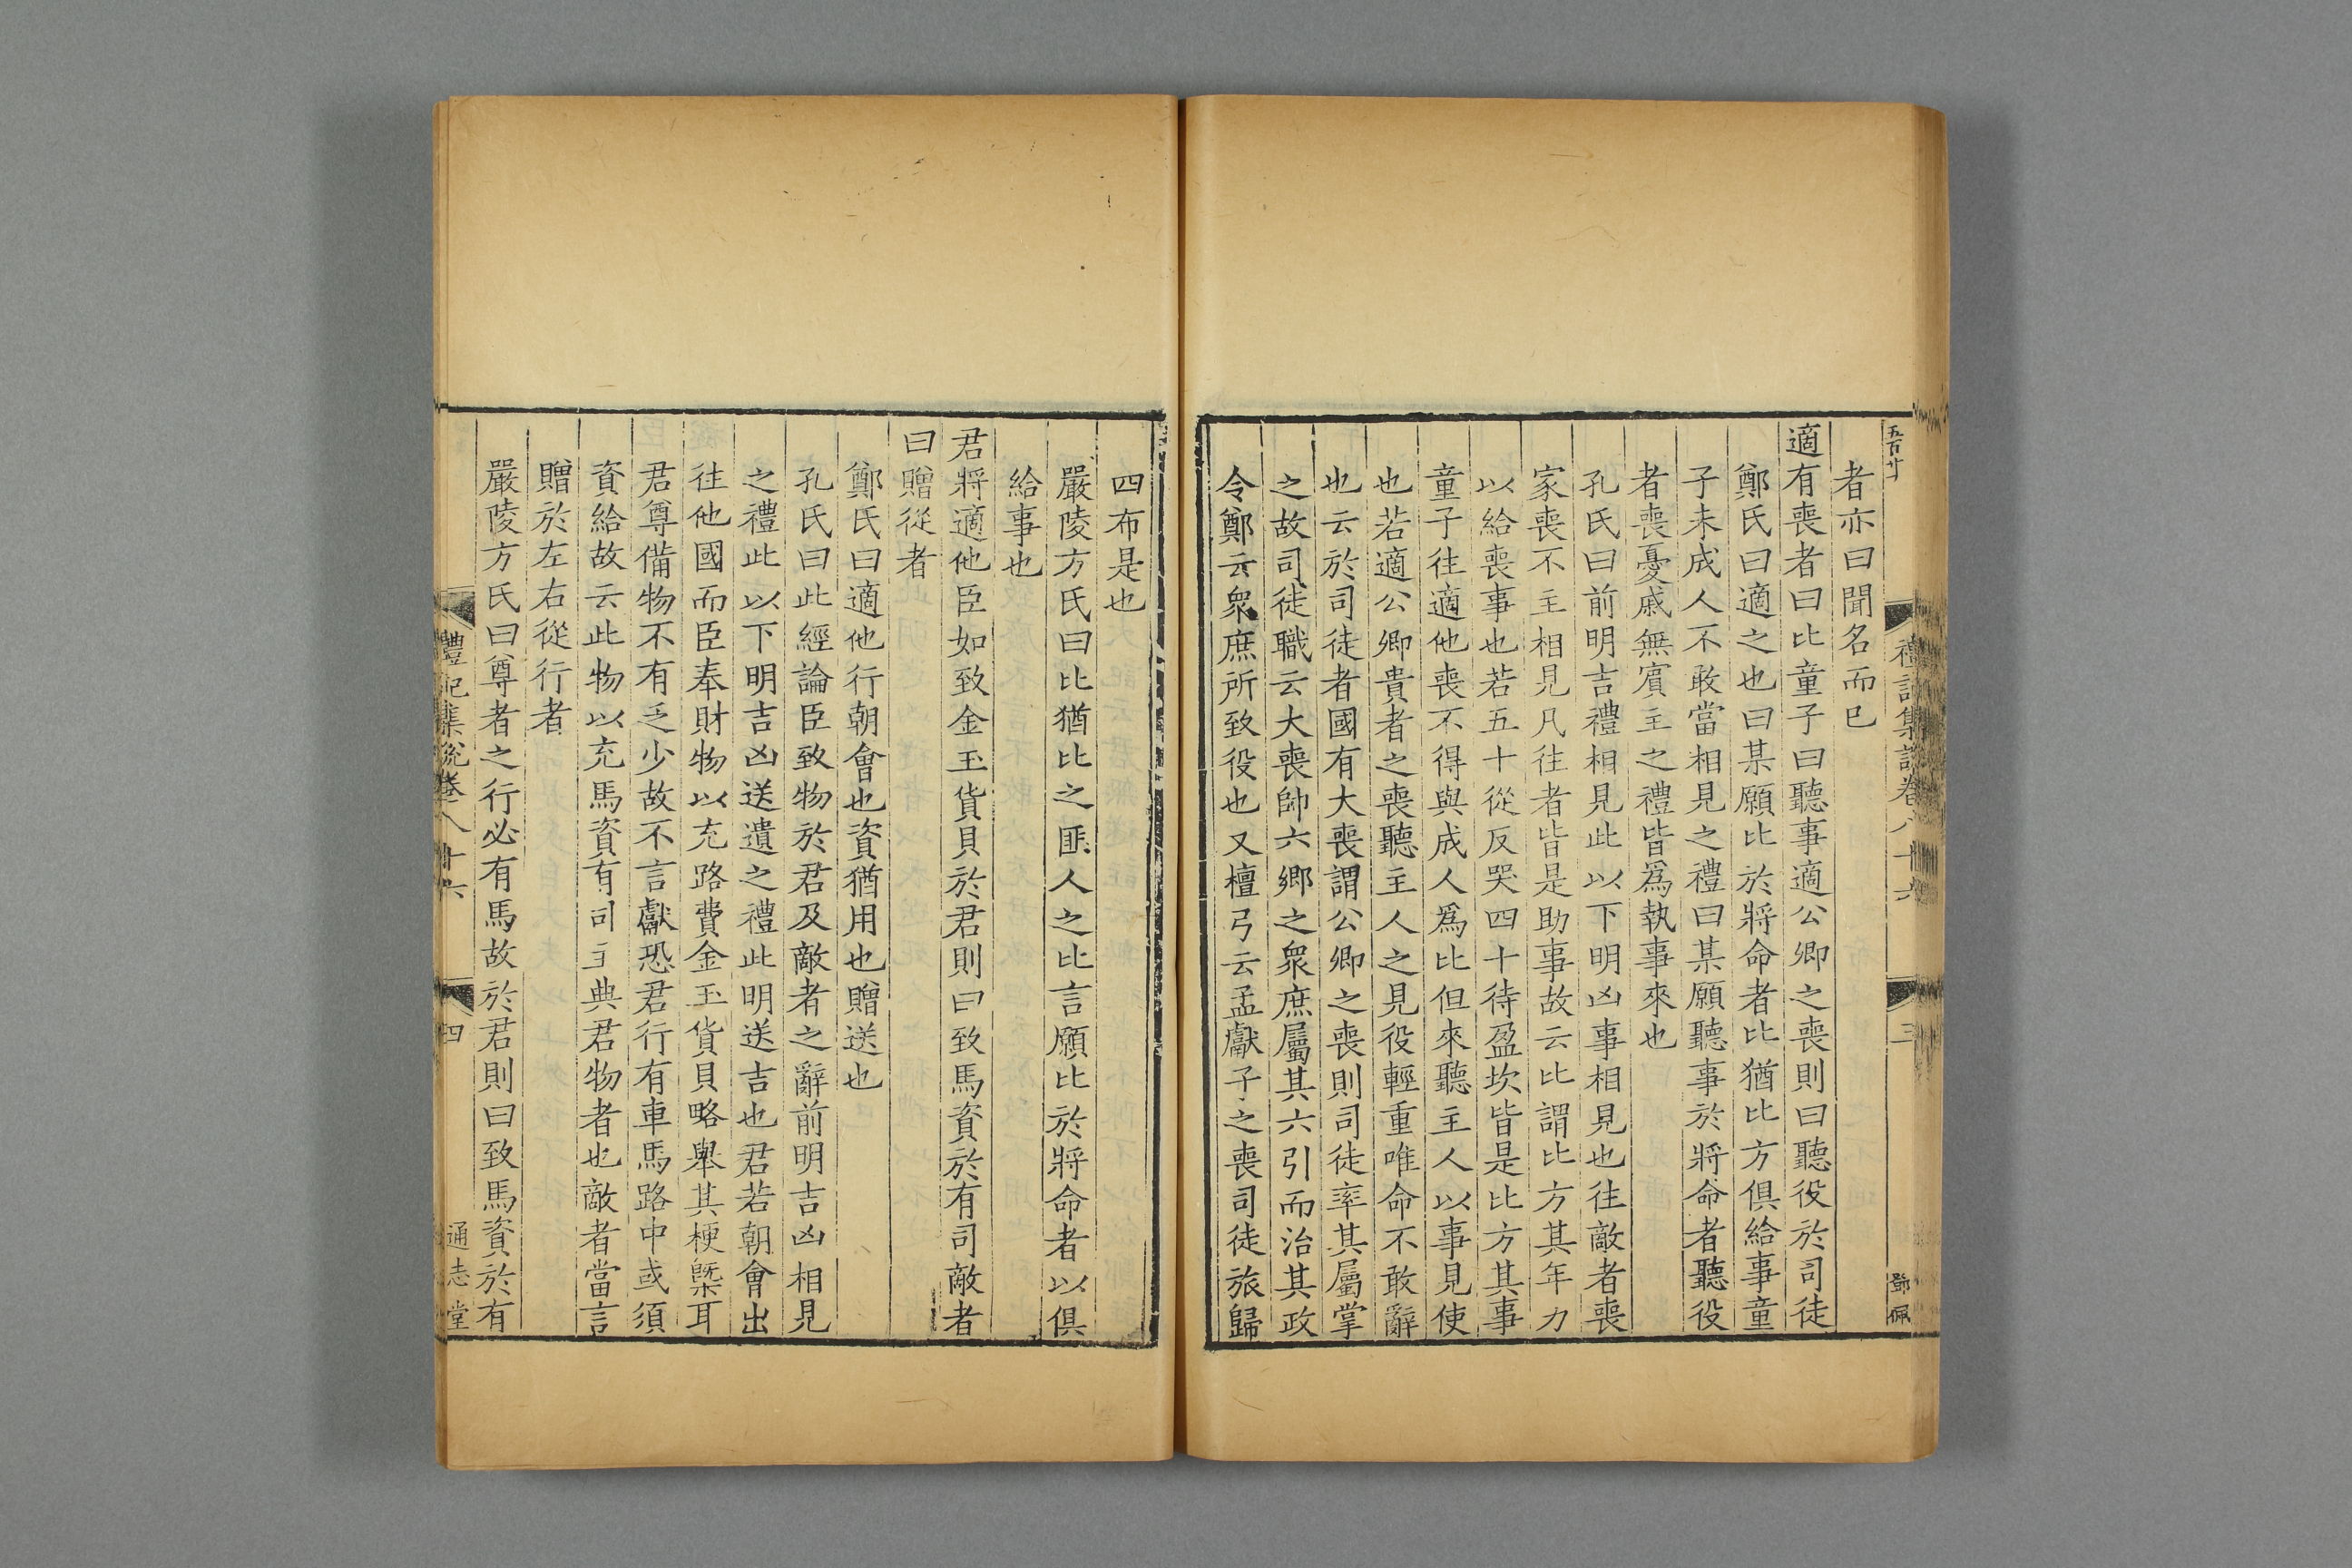 五百廿
禮記集說卷八十六
三
鄧佩
者亦曰聞名而已
適有喪者曰比童子曰聽事適公卿之喪則曰聽役於司徒
鄭氏曰適之也曰某願比於將命者比猶比方俱給事童
子未成人不敢當相見之禮曰某願聽事於將命者聽役
者喪憂戚無賓主之禮皆爲執事來也
孔氏曰前明吉禮相見此以下明凶事相見也往敵者喪
家喪不主相見凡往者皆是助事故云比謂比方其年力
以給喪事也若五十從反哭四十待盈坎皆是比方其事
童子往適他喪不得與成人爲比但來聽主人以事見使
也若適公卿貴者之喪聽主人之見役輕重唯命不敢辭
也云於司徒者國有大喪謂公卿之喪則司徒率其屬掌
之故司徒職云大喪帥六鄉之衆庶屬其六引而治其政
令鄭云衆庶所致役也又檀弓云孟獻子之喪司徒旅歸
四布是也
嚴陵方氏曰比猶比之匪人之比言願比於將命者以俱
給事也
君將適他臣如致金玉貨貝於君則曰致馬資於有司敵者
曰贈從者
鄭氏曰適他行朝會也資猶用也贈送也
孔氏曰此經論臣致物於君及敵者之辭前明吉凶相見
之禮此以下明吉凶送遺之禮此明送吉也君若朝會出
往他國而臣奉財物以充路費金玉貨貝略舉其梗槩耳
君尊備物不有乏少故不言獻恐君行有車馬路中或須
資給故云此物以充馬資有司主典君物者也敵者當言
贈於左右從行者
嚴陵方氏曰尊者之行必有馬故於君則曰致馬資於有
禮記集說卷八十六
四
通志堂